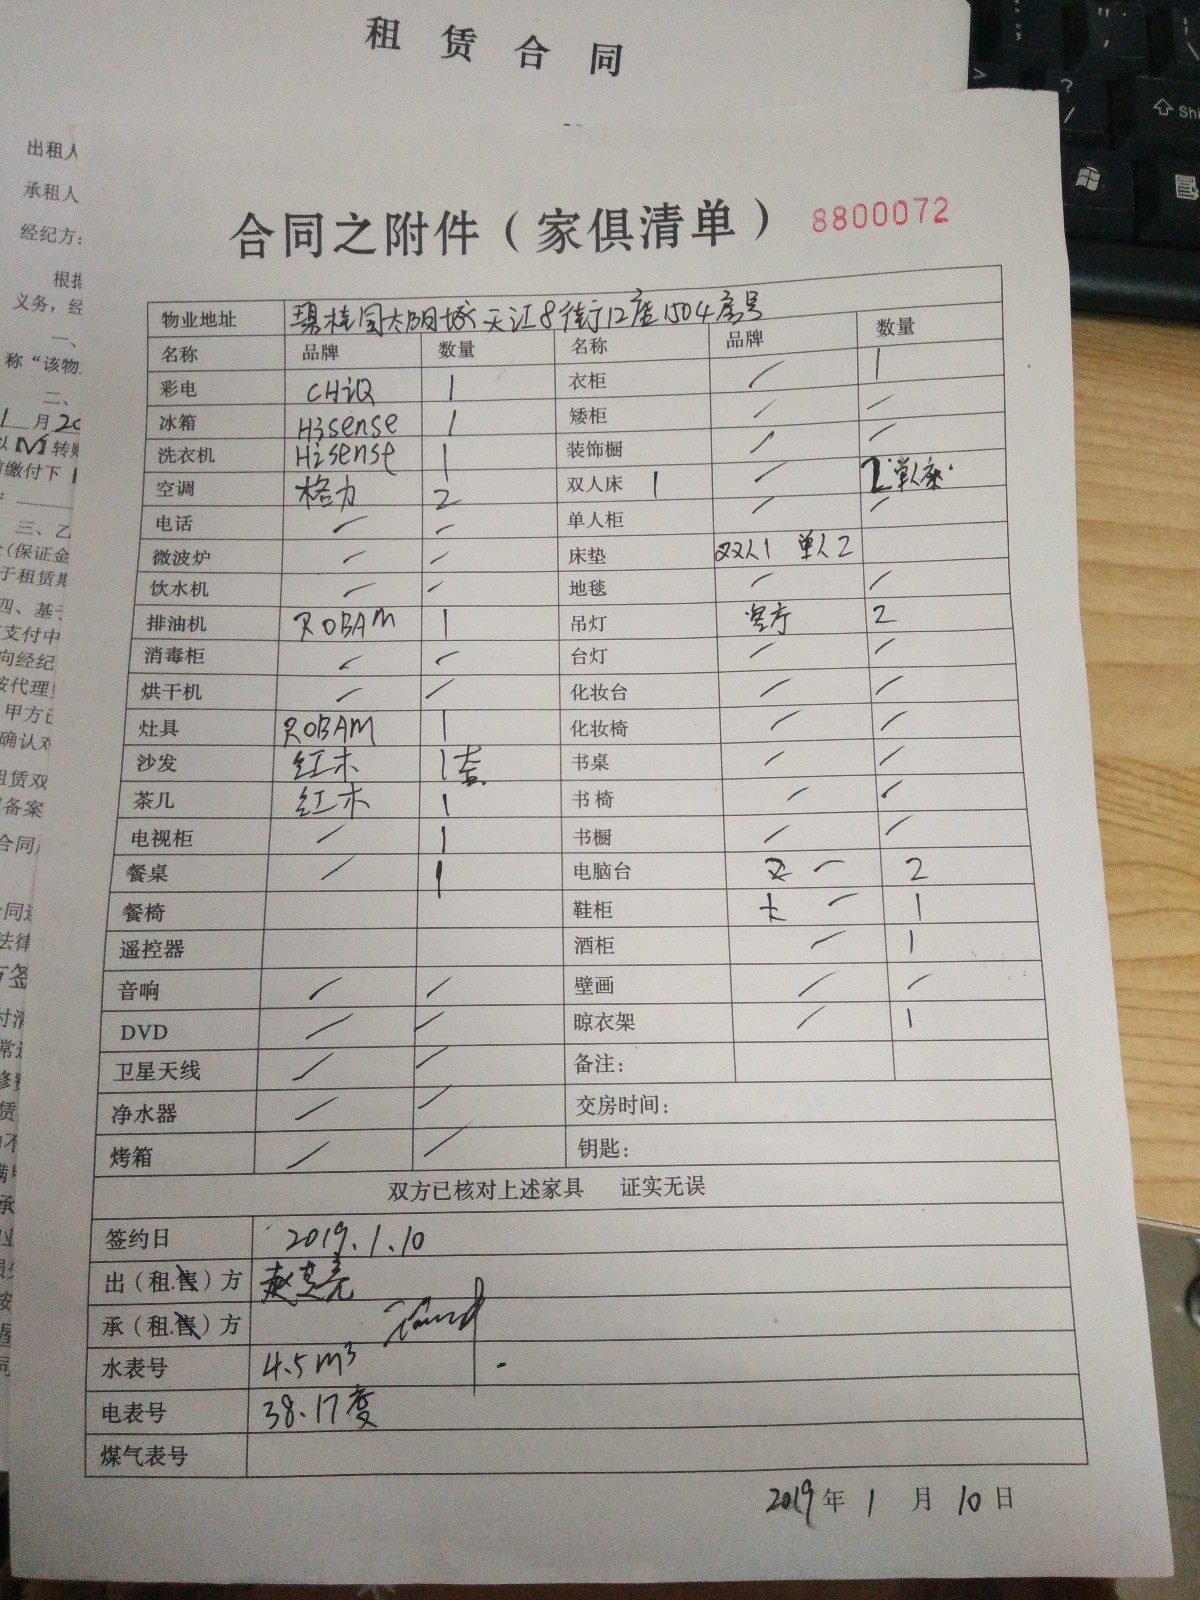 租 赁 合 同
出租人
承租人
经纪方:
根据
义务，经
一、
称“该物
二、
1 月 20
转账
缴付下
三、乙
（保证金
于租赁期
四、基于
支付中
向经纪
按代理
甲方已
确认
租赁双
备案
合同
合同之附件（家俱清单） 8800072
物业地址 碧桂园太阳城天江8街12座1504房号
名称 品牌 数量 名称 品牌 数量
彩电 CHiQ 1 衣柜 / 1
冰箱 Hisense 1 矮柜 / /
洗衣机 Hisense 1 装饰橱 / /
空调 格力 2 双人床 1 / 2单人床.
电话 / / 单人柜 / /
微波炉 / / 床垫 双人1 单人2
饮水机 / / 地毯 / /
排油机 ROBAM 1 吊灯 客厅 2
消毒柜 / / 台灯 / /
烘干机 / / 化妆台 / /
灶具 ROBAM 1 化妆椅 / /
沙发 红木 1套 书桌 / /
茶几 红木 1 书椅 / /
电视柜 / 1 书橱 / /
餐桌 / 1 电脑台 / 2
餐椅 鞋柜 / 1
遥控器 酒柜 / 1
音响 / / 壁画 / /
DVD / / 晾衣架 / 1
卫星天线 / / 备注：
净水器 / / 交房时间：
烤箱 / / 钥匙：
双方已核对上述家具 证实无误
签约日 2019.1.10
出（租.售）方
承（租.售）方
水表号 4.5m³
电表号 38.17度
煤气表号
2019年 1 月 10 日